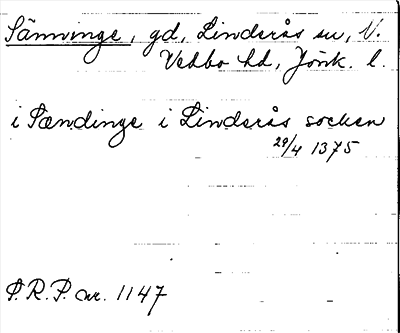 Sänninge, gd, Linderås sn, V.
Vedbo hd, Jönk. l.
i Sændinge i Linderås socken
29/4 1375
P.R.P. nr. 1147